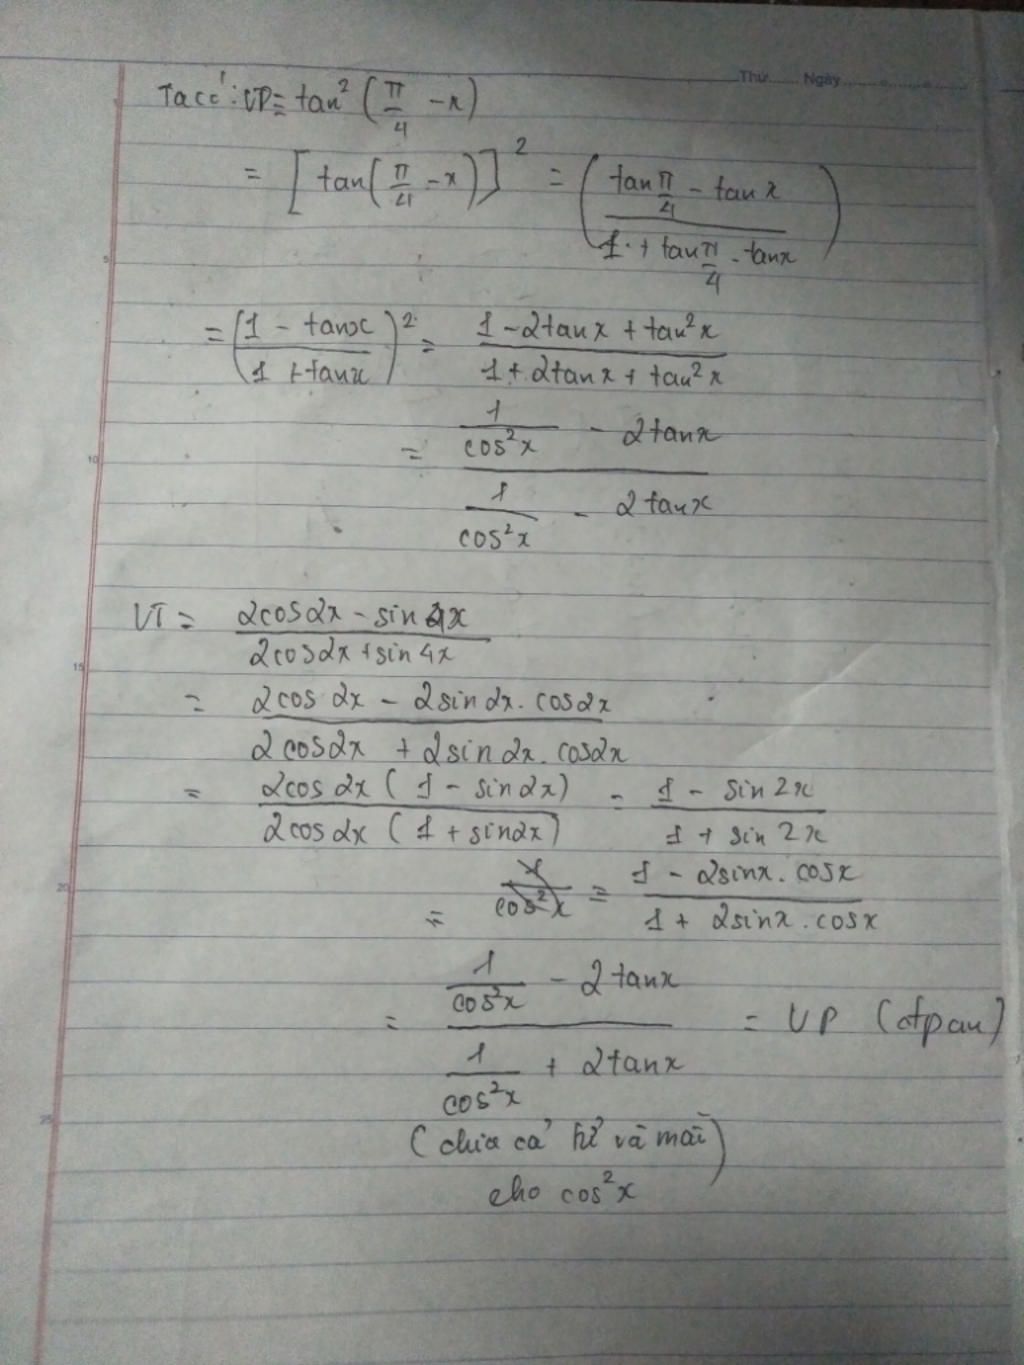 Thứ ........ Ngày ........
Ta có: VP = tan² (π/4 - x)
= [tan(π/4 - x)]² = (tan π/4 - tan x / 1 + tan π/4 . tan x)
5
= (1 - tanx / 1 + tanx)² = 1 - 2tanx + tan²x / 1 + 2tanx + tan²x
10
= 1/cos²x - 2tanx / 1/cos²x - 2tanx
VT = 2cos2x - sin4x / 2cos2x + sin4x
15
= 2cos2x - 2sin2x . cos2x / 2cos2x + 2sin2x . cos2x
= 2cos2x (1 - sin2x) / 2cos2x (1 + sin2x) = 1 - sin2x / 1 + sin2x
20
= 1/cos²x = 1 - 2sinx . cosx / 1 + 2sinx . cosx
= 1/cos²x - 2tanx / 1/cos²x + 2tanx = VP (đpcm)
25
(chia cả tử và mẫu)
cho cos²x